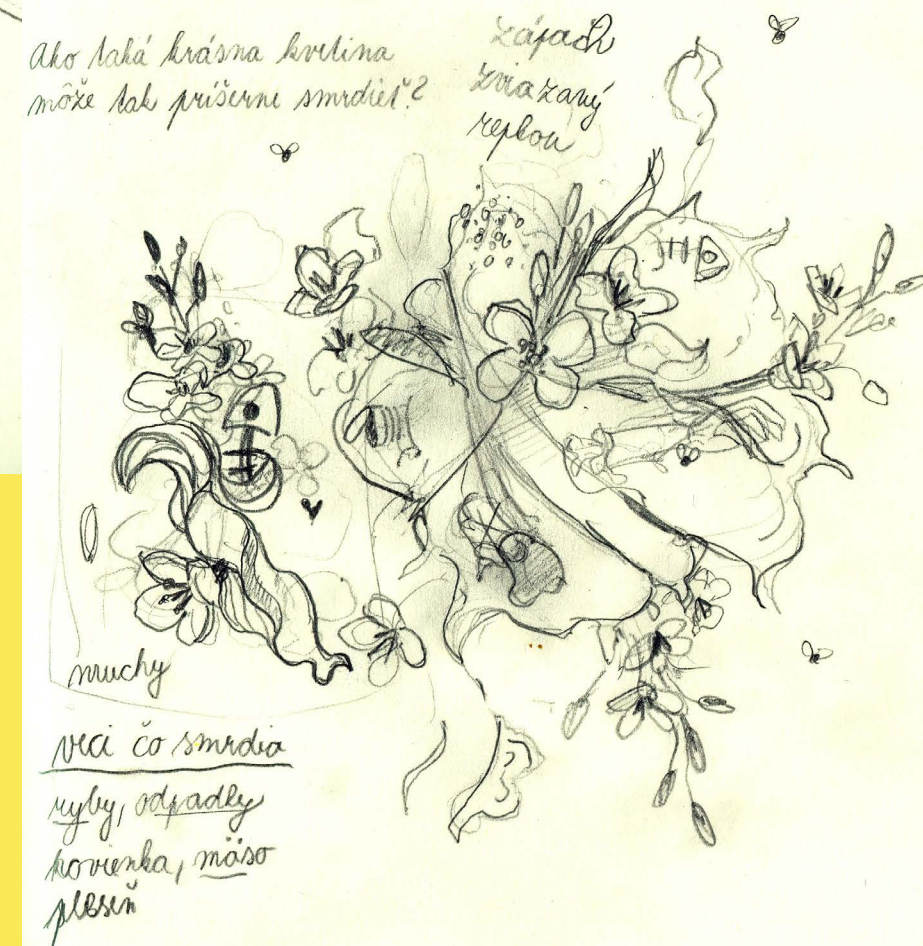 Ako taká krásna kvetina
môže tak príšerne smrdieť?
zápach
zviazaný
muchy
veci čo smrdia
ryby, odpadky
mäso
pleseň